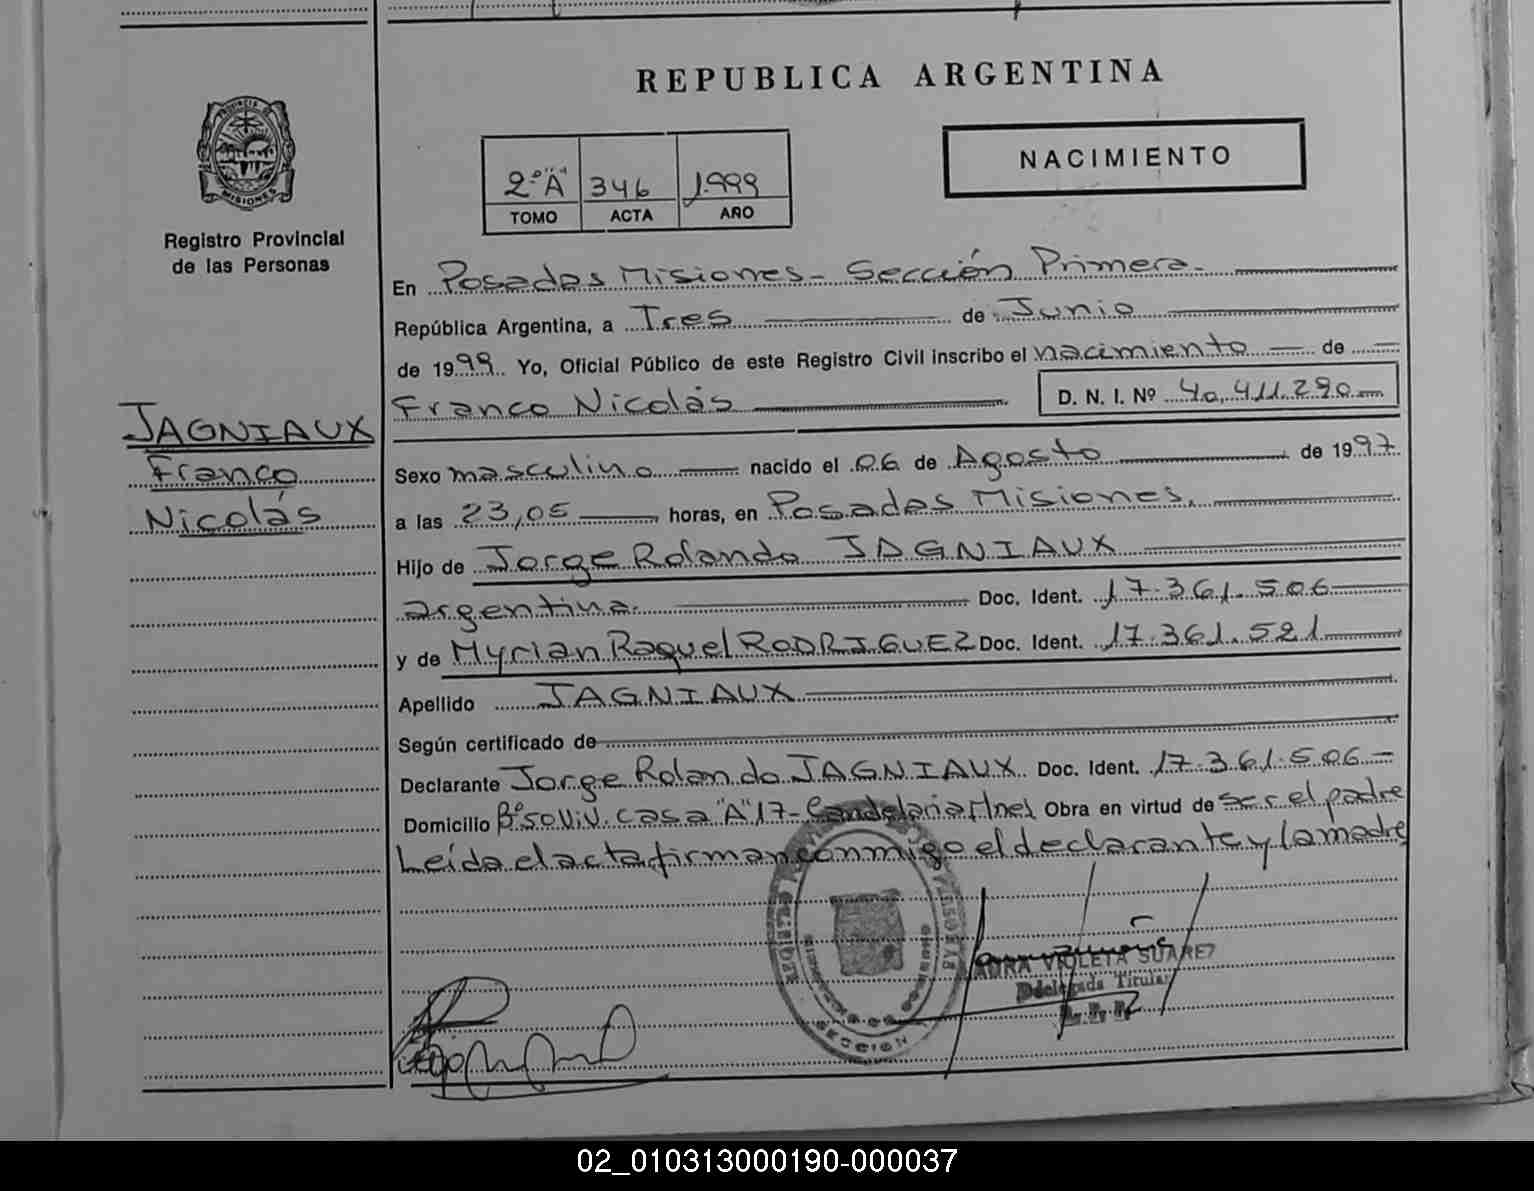 REPUBLICA ARGENTINA
PROVINCIA DE
MISIONES
Registro Provincial
de las Personas
2º"A" 346 1.999
TOMO ACTA AÑO
NACIMIENTO
En Posadas Misiones - Sección Primera.
República Argentina, a Tres de Junio
de 1999. Yo, Oficial Público de este Registro Civil inscribo el nacimiento de
Franco Nicolás D. N. I. Nº 40.411.290
JAGNIAUX
Franco
Nicolás
Sexo masculino nacido el 06 de Agosto de 1997
a las 23,05 horas, en Posadas Misiones.
Hijo de Jorge Rolando JAGNIAUX
argentina. Doc. Ident. 17.361.506
y de Myrian Raquel RODRIGUEZ Doc. Ident. 17.361.521
Apellido JAGNIAUX
Según certificado de
Declarante Jorge Rolando JAGNIAUX Doc. Ident. 17.361.506
Domicilio Bº50Viv. casa "A" 17 - Candelaria Mnes Obra en virtud de ser el padre
Leída el acta firman conmigo el declarante y la madre
LAURA VIOLETA SUAREZ
Delegada Titular
SECCION
02_010313000190-000037